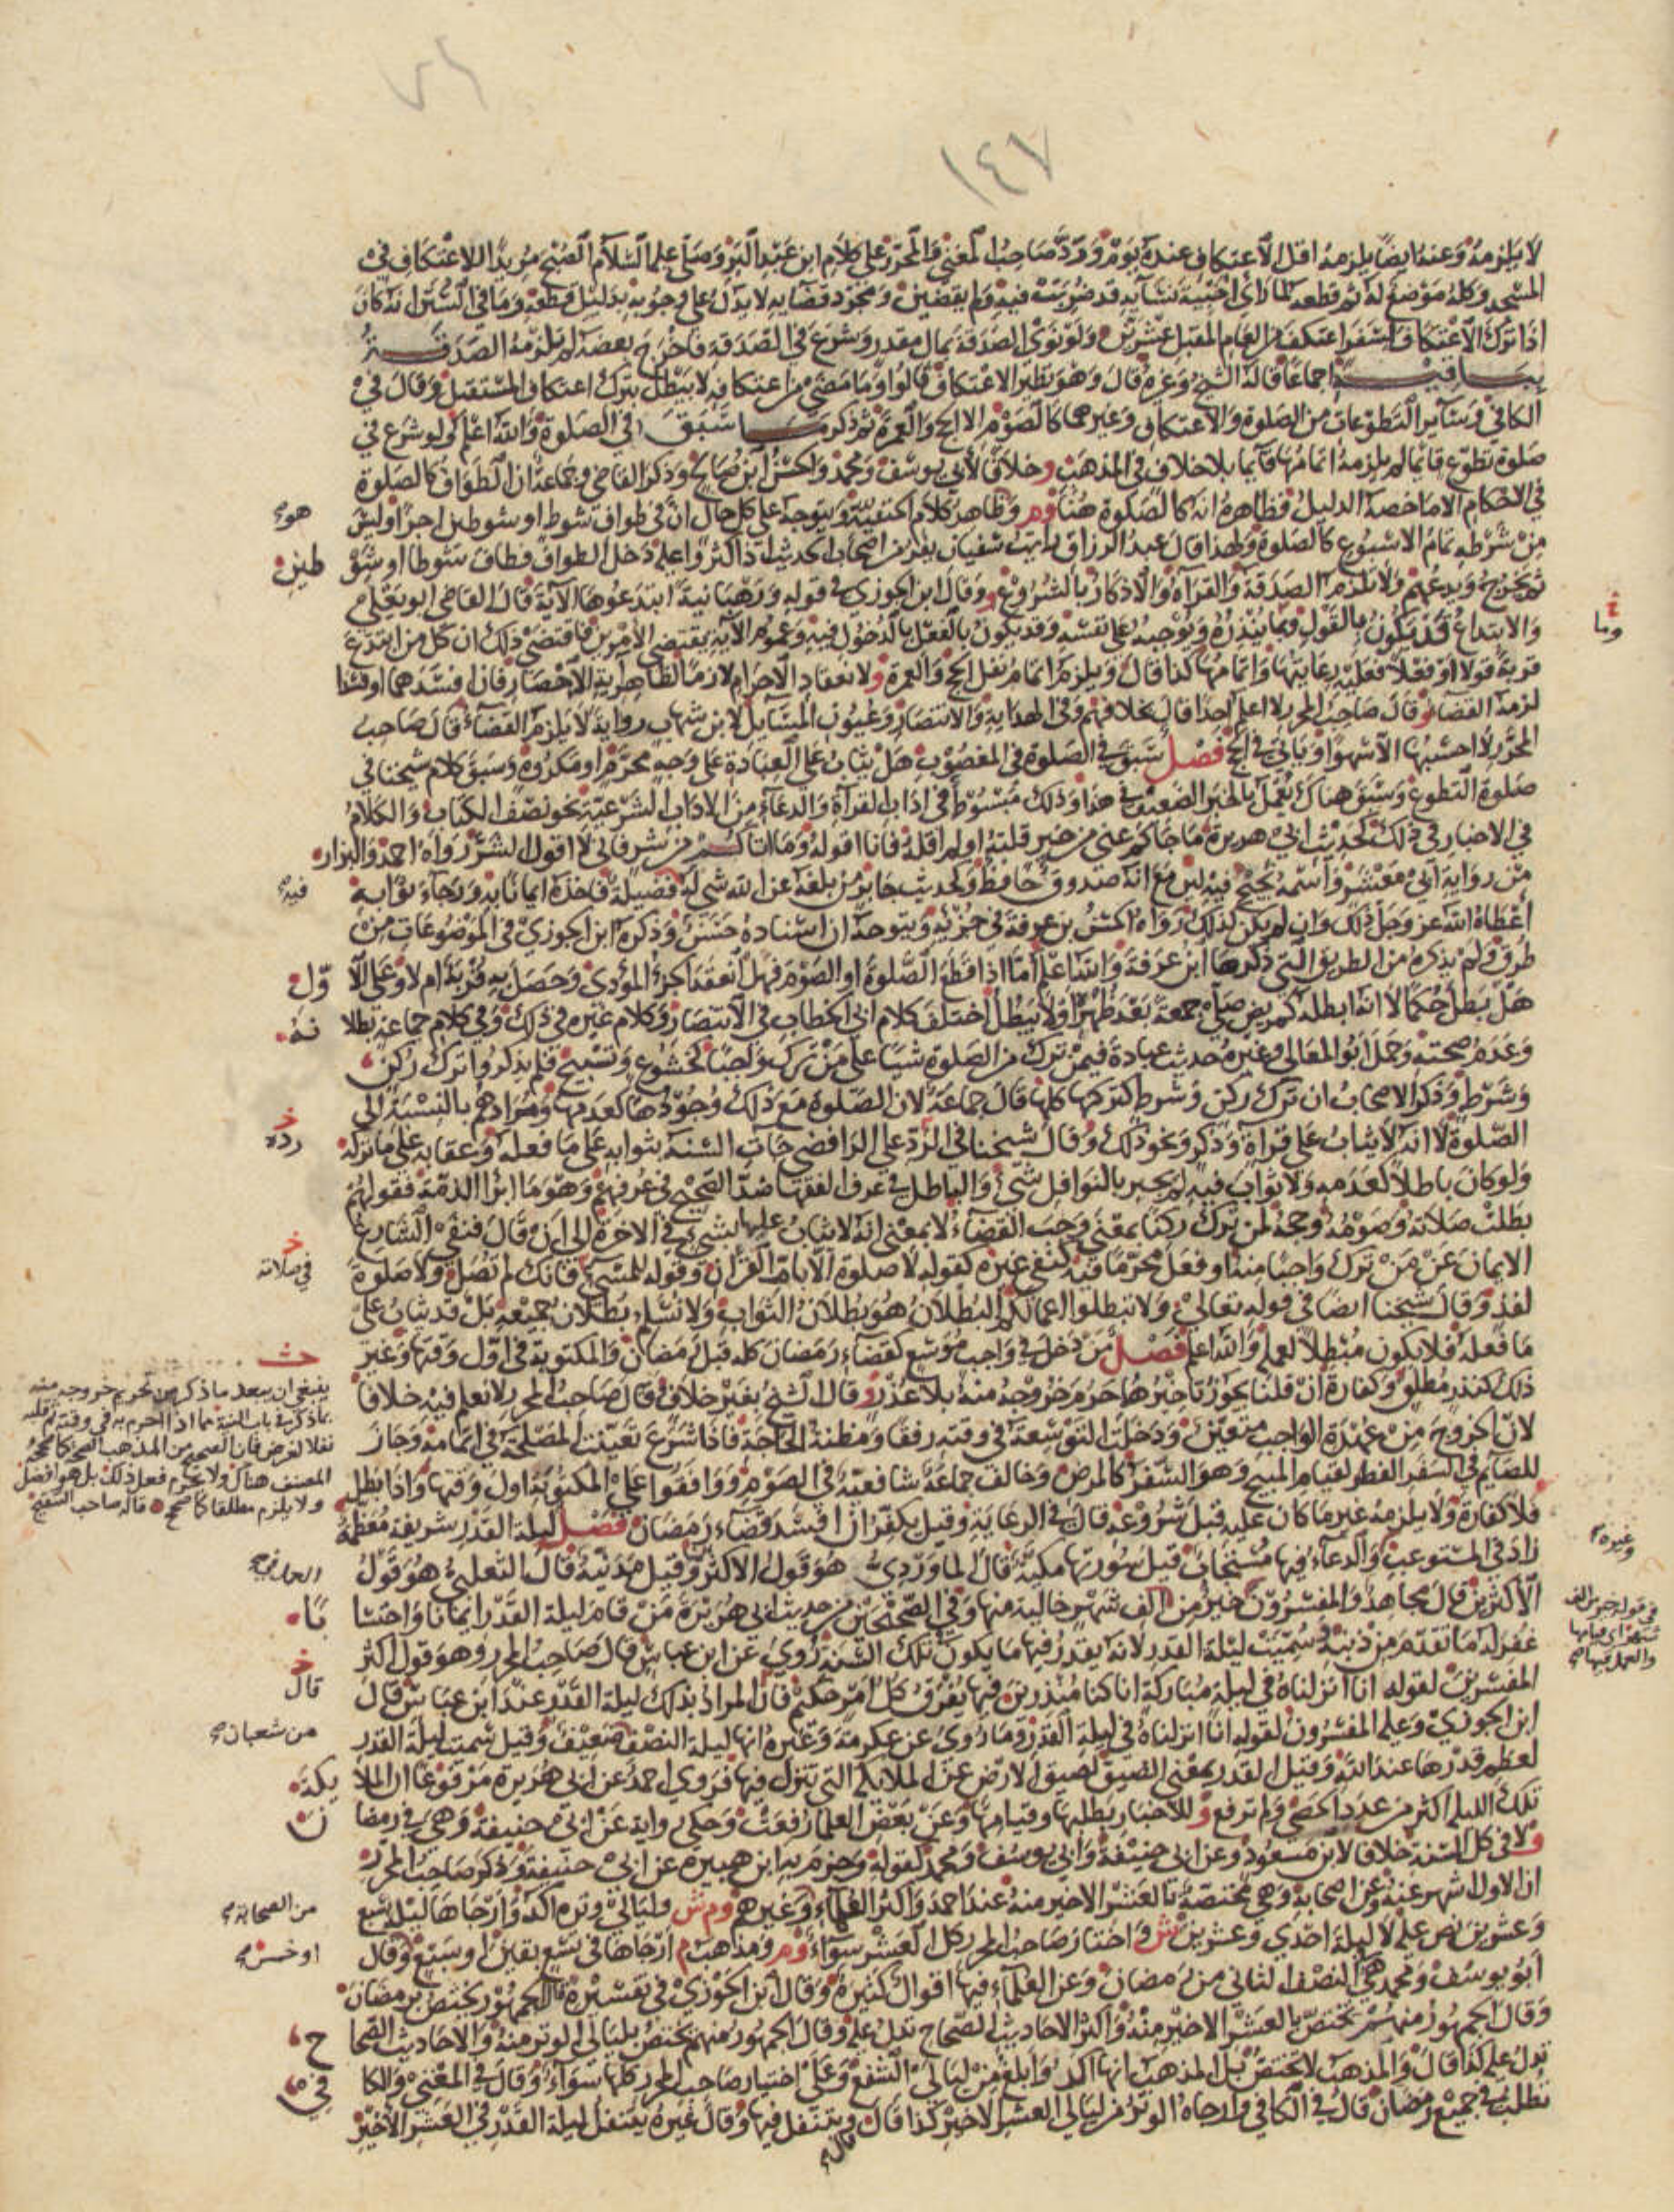 ١٤٧
لا يلزمه وعنه ايضا يلزمه اقل الاعتكاف عنده يوم ورد صاحب المغني والمحرر على كلام ابن عبد البر وصلى عليه السلام الصبح مريدا للاعتكاف في
المسجد وكله موضع له ثم قطعه لما راى اخبية نسآيه قد ضربت فيه ولم يقضين ومجرد قضايه لا يدل على وجوبه بدليل قطعه وما في السنن انه كان
اذا ترك الاعتكاف لسفر اعتكف من العام المقبل عشرين ولو نوى الصدقة بمال مقدر وشرع في الصدقة فاخرج بعضه لم يلزمه الصدقة
بباقيه اجماعا قاله الشيخ وغيره قال وهو نظير الاعتكاف قالوا وما مضى من اعتكافه لا يبطل بترك اعتكاف المستقبل وقال في
الكافي وسآير التطوعات من الصلوة والاعتكاف وغيرهما كالصوم الا الحج والعمرة ثم ذكر ما سبق في الصلوة والله اعلم لو شرع في
صلوة تطوع قايما لم يلزمه اتمامها قآيما بلا خلاف في المذهب وخلافا لابي يوسف ومحمد والحسن ابن صالح وذكر القاضي وجماعة ان الطواف كالصلوة
في الاحكام الا ما خصه الدليل فظاهره انه كالصلوة هنا وم وظاهر كلام الحنفية ويتوجه على كل حال ان في طواف شوط او شوطين اجرا وليس هو
من شرطه تمام الاسبوع كالصلوة ولهذا قال عبد الرزاق رايت سفيان يفر من اصحاب الحديث اذا كثروا عليه دخل الطواف فطاف شوطا او شو طين
ثم يخرج ويدعهم ولا تلزم الصدقة والقراة والاذكار بالشروع و وقال ابن الجوزي في قوله ورهبانية ابتدعوها الآية قال القاضي ابو يعلى
والابتداع قد يكون بالقول وهو ما ينذره ويوجبه على نفسه وقد يكون بالفعل بالدخول فيه وعموم الآية يقتضي الامرين فاقتضى ذلك ان كل من ابتدع
قربة قولا او فعلا فعليه رعايتها واتمامها كذا قال ويلزم اتمام نفل الحج والعمرة ولانعقاد الاحرام لازما لظاهر اية الاحصار فان افسدهما او فسدا
لزمه القضا و قال صاحب المحرر لا اعلم احدا قال بخلافهم وفي الهداية والانتصار وعيون المسايل لابن شهاب رواية لا يلزم القضاء قال صاحب
المحرر لا احسبها الا سهوا وياتي في الحج فصل سبق في الصلوة في المغصوب هل يثاب على العبادة على وجه محرم او مكروه وسبق كلام شيخنا في
صلوة التطوع وسبق هناك يعمل بالخبر الضعيف في هذا وذلك مبسوط في اداب القراة والدعآء من الاداب الشرعية نحو نصف الكتاب والكلام
في الاخبار في ذلك كحديث ابي هريرة ما جاكم عني من خير قلته او لم اقله فانا اقوله وما اتاكم من شر فاني لا اقول الشر رواه احمد والبزار
من رواية ابي معشر واسمه نجيح فيه لين مع انه صدوق حافظ ولحديث جابر من بلغه عن الله شي له فضيلة فاخذه ايمانا به ورجاء ثوابه فيه
اعطاه الله عز وجل ذلك وان لم يكن كذلك رواه الحسن بن عرفة في جزئه ويتوجه ان اسناده حسن وذكره ابن الجوزي في الموضوعات من
طرق ولم يذكره من الطريق التي ذكرها ابن عرفة والله اعلم اما اذا قطع الصلوة او الصوم فهل انعقد الجزء المؤدى وحصل به قربة ام لا وعلى الا ول
هل بطل حكما لا انه ابطله كمريض صلى جمعة بعد ظهر او لا يبطل اختلف كلام ابي الخطاب في الانتصار وكلام غيره في ذلك وفي كلام جماعة بطلا نه
وعدم صحته وحمل ابو المعالي وغيره حديث عبادة فيمن ترك من الصلوة شيا على من ترك واجبا كخشوع وتسبيح فلم يذكروا ترك ركن
وشرط وذكر الاصحاب ان ترك ركن وشرط كتركها كلها قال جماعة لان الصلوة مع ذلك وجودها كعدمها ومرادهم بالنسبة الى
الصلوة لا انه لا يثاب على قراة وذكر ونحو ذلك وقال شيخنا في الرد على الرافضي جآت السنة بثوابه على ما فعله وعقابه على ما تركه رده
ولو كان باطلا كعدمه ولا ثواب فيه لم يجبر بالنوافل شيء والباطل في عرف الفقها ضد الصحيح في عرفهم وهو ما ابرا الذمة فقولهم
بطلت صلاته وصومه وحجه لمن ترك ركنا بمعنى وجب القضاء لا بمعنى انه لا يثاب عليها بشيء في الاخرة الى ان قال فنفي الشارع
الايمان عن من ترك واجبا منه او فعل محرما فيه كنفي غيره كقوله لا صلوة الا بام القرآن وقوله للمسيء فانك لم تصل ولا صلوة في صلاته
لفذ وقال شيخنا ايضا في قوله تعالى ولا تبطلوا اعمالكم البطلان هو بطلان الثواب ولا نسلم بطلان جميعه بل قد يثاب على
ما فعله فلا يكون مبطلا لعمله والله اعلم فصل من دخل في واجب موسع كقضاء رمضان كله قبل رمضان والمكتوبة في اول وقتها وغير
ذلك كنذر مطلق وكفارة ان قلنا يجوز تاخيرها حرم خروجه منه بلا عذر و قال الشيخ بغير خلاف وقال صاحب المحرر لا نعلم فيه خلافا
لان الخروج من عهدة الواجب متعين ودخلت التوسعة في وقته رفقا ومظنة للحاجة فاذا شرع تعينت المصلحة في اتمامه وجاز
للصايم في السفر الفطر لقيام المبيح وهو السفر كالمرض وخالف جماعة شافعية في الصوم ووافقوا على المكتوبة اول وقتها واذا بطل
فلا كفارة ولا يلزمه غير ما كان عليه قبل شروعه قال في الرعاية وقيل يكفر ان افسد قضاء رمضان فصل ليلة القدر شريفة معظمة
زاد في المستوعب والدعآء فيها مستجاب قيل سورتها مكية قال الماوردي هو قول الاكثرين وقيل مدنية قال الثعلبي هو قول
الاكثرين قال مجاهد والمفسرون خير من الف شهر خالية منها وفي الصحيحين من حديث ابي هريرة من قام ليلة القدر ايمانا واحتسا با
غفر له ما تقدم من ذنبه وسميت ليلة القدر لانه يقدر فيها ما يكون تلك السنة روي عن ابن عباس قال صاحب المحرر وهو قول اكثر
المفسرين لقوله انا انزلناه في ليلة مباركة انا كنا منذرين فيها يفرق كل امر حكيم فان المراد بذلك ليلة القدر عند ابن عباس قال قال
ابن الجوزي وعليه المفسرون لقوله انا انزلناه في ليلة القدر وما روى عن عكرمة وغيره انها ليلة النصف من شعبان ضعيف وقيل سميت ليلة القدر
لعظم قدرها عند الله وقيل القدر بمعنى الضيق لضيق الارض عن الملايكة التي تنزل فيها فروي احمد عن ابي هريرة مرفوعا ان الملا يكة
تلك الليلة اكثر من عدد الحصى ولم ترفع و للاخبار بطلبها وقيامها وعن بعض العلماء رفعت وحكي رواية عن ابي حنيفة وهي في رمضا ن
ولا في كل السنة خلافا لابن مسعود وعن ابي حنيفة وابي يوسف ومحمد كقوله وجزم به ابن هبيرة عن ابي حنيفة وذكر صاحب المحرر
ان الاول اشهر عنه وعن اصحابه وهي مختصة بالعشر الاخير منه عند احمد واكثر العلماء من الصحابة وغيرهم وم ش ولياليه وتره آكد وارجاها ليلة سبع
وعشرين نص عليه لا ليلة احدى وعشرين ش و اختار صاحب المحرر كل العشر سواء وم ومذهب م ارجاها في تسع بقين او سبع او خمس وقال
ابو يوسف ومحمد هي النصف الثاني من رمضان وعن العلماء فيها اقوال كثيرة وقال ابن الجوزي في تفسيره قال الجمهور يختص برمضان
وقال الجمهور منهم يختص بالعشر الاخير منه واكثر الاحاديث الصحاح تدل عليه وقال الجمهور منهم يختص بليالي الوتر منه والاحاديث الصحا ح
تدل عليه كذا قال والمذهب لا تختص بل المذهب انها آكد وابلغ من ليالي الشفع وعلى اختيار صاحب المحرر كلها سواء وقال في المغني والكا في
تطلب في جميع رمضان قال في الكافي وارجاه الوتر من ليالي العشر الاخير كذا قال ويتنفل فيها وقال غيره يتنفل ليلة القدر في العشر الاخير
قال
وما
ينبغي ان يبعد ما ذكر من تحريم خروجه منه
بما ذكر في باب النية مما اذا احرم به في وقته ثم قلبه
نفلا لغرض فان الصحيح من المذهب الصحة كما صححه
المصنف هناك ولا يحرم فعل ذلك بل هو افضل
ولا يلزم مطلقا كما صحح قاله صاحب التنقيح
الحارثي
وغيره
في قوله خير من الف
شهر اي قيامها
والعمل فيها